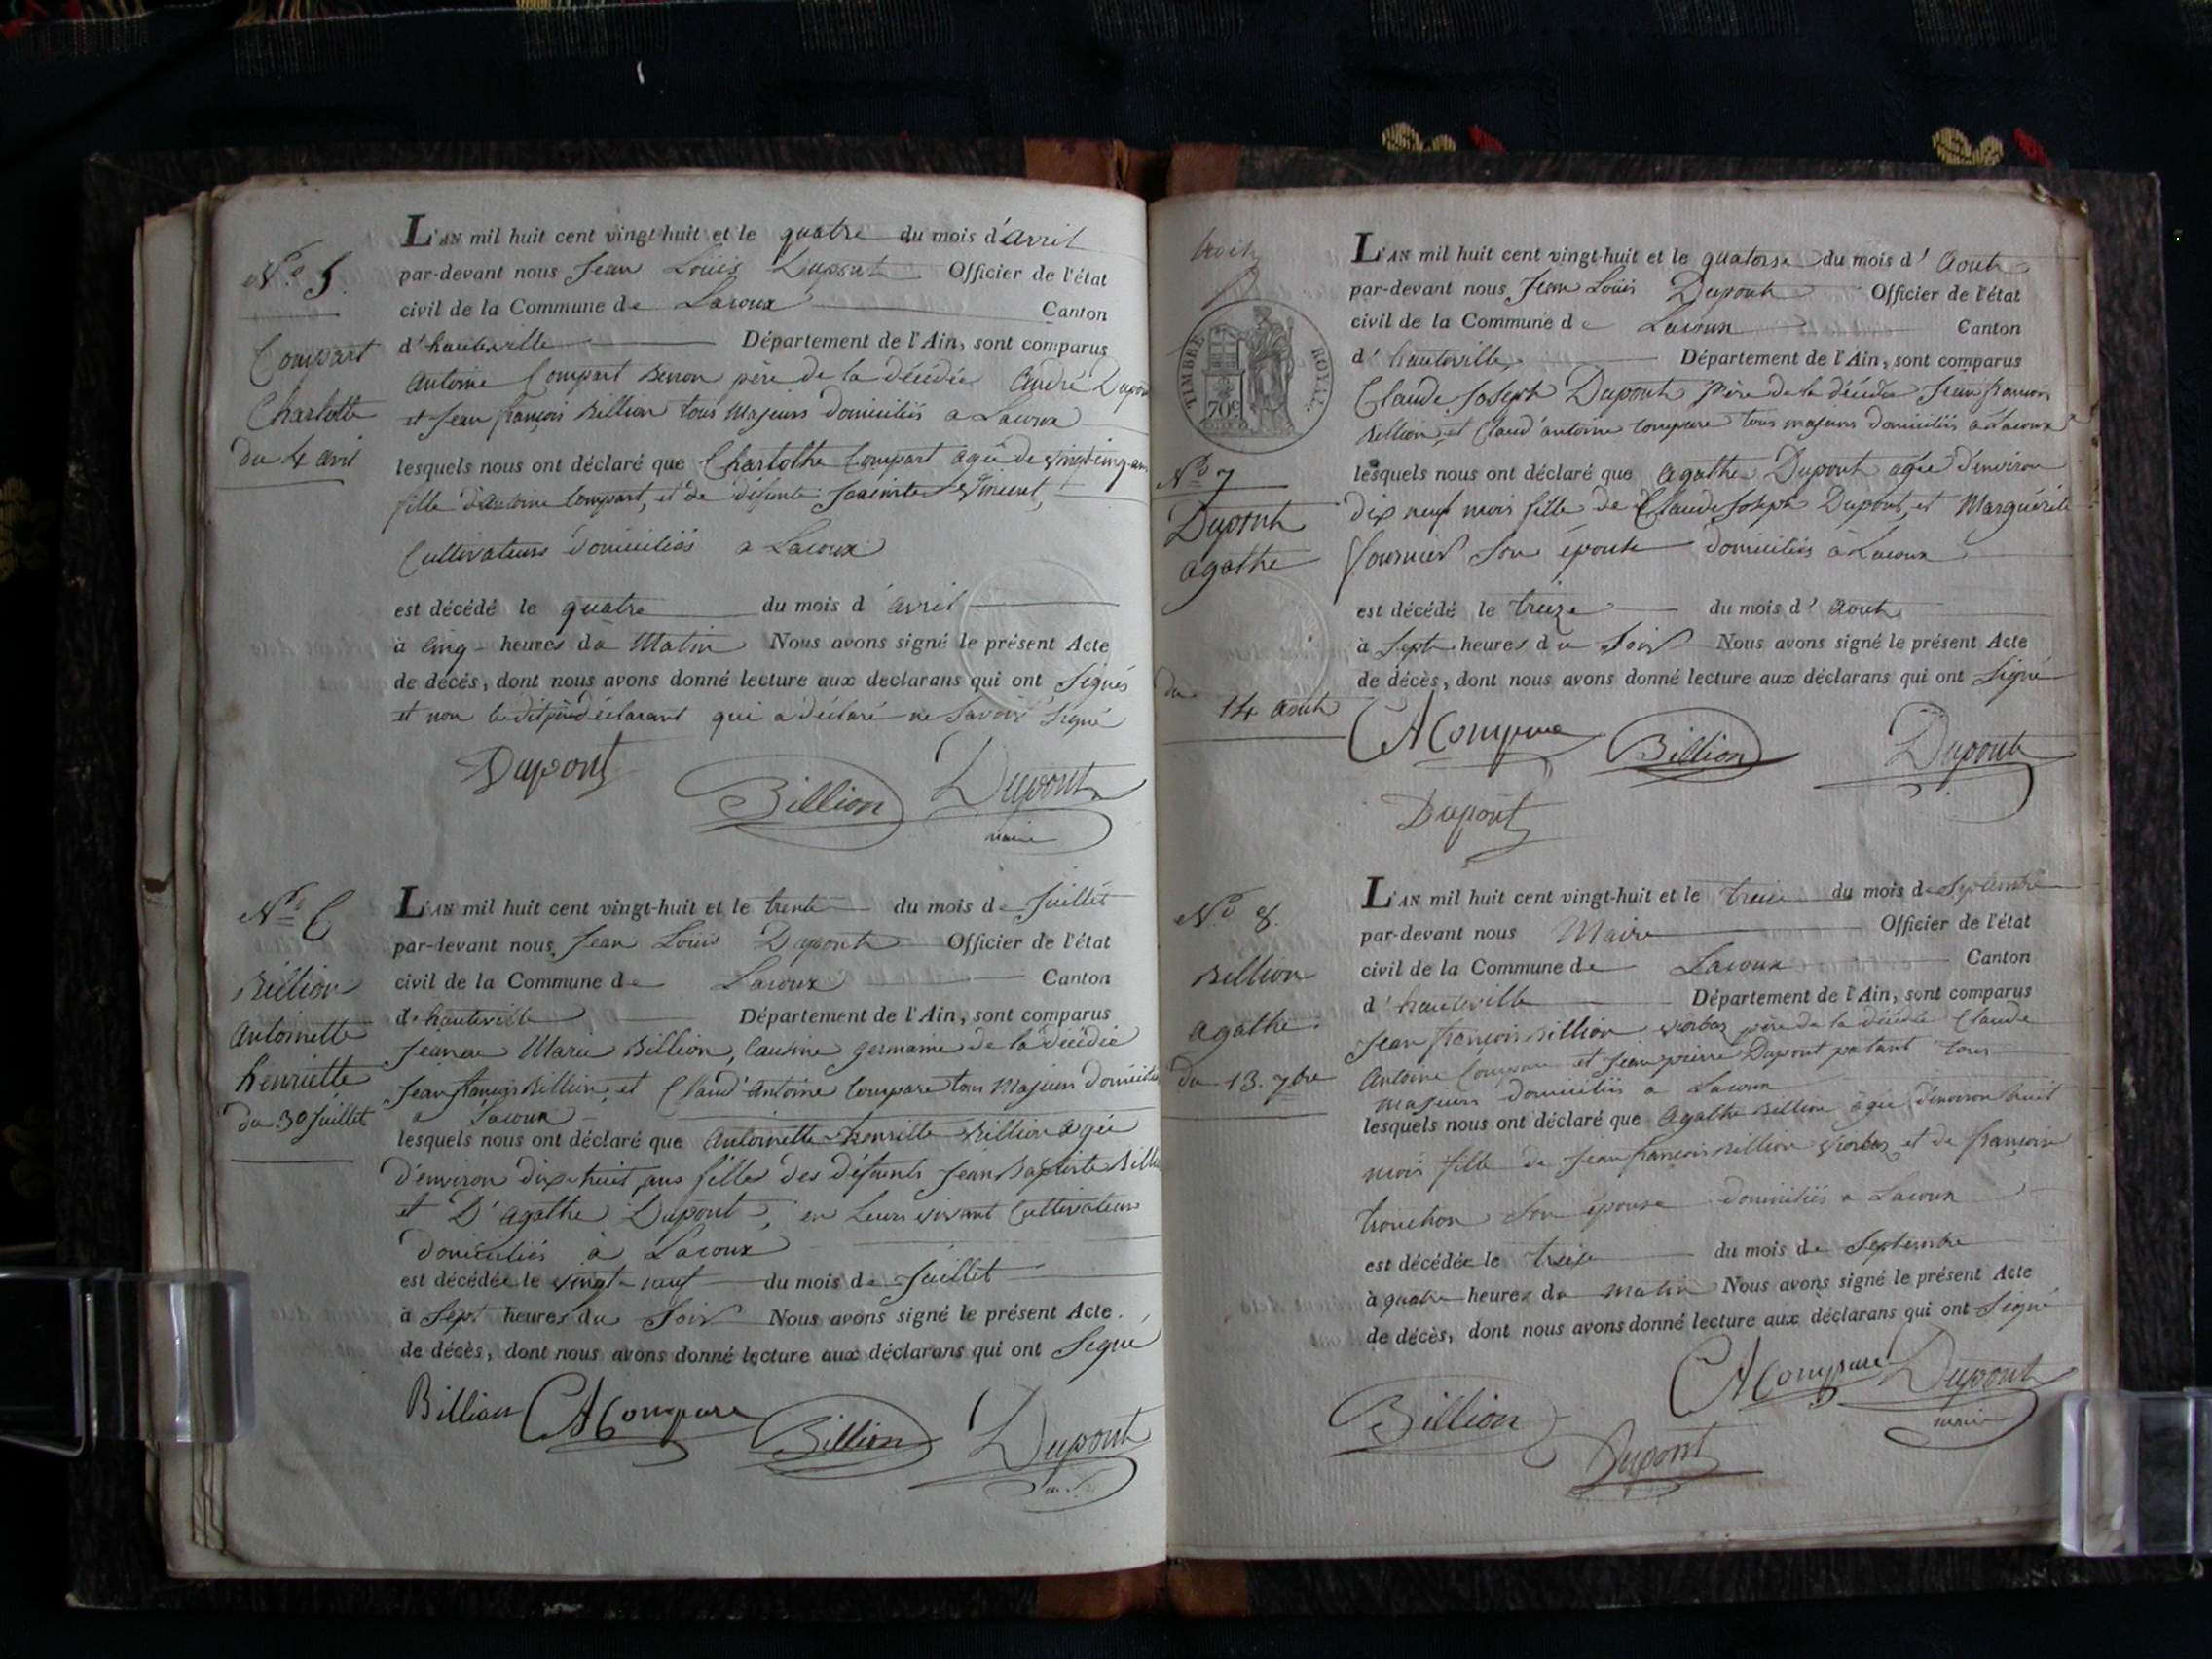 N.o 5.
Compart
Charlotte
du 4 avril
L'AN mil huit cent vingt-huit et le quatre du mois d'avril
par-devant nous Jean Loüis Dupont Officier de l'état
civil de la Commune de Lacoux Canton
d'hauteville Département de l'Ain, sont comparus
Antoine Compart père de la décédée André Dupont
et Jean françois Billion tous Majeurs domiciliés a Lacoux
lesquels nous ont déclaré que Charlotte Compart agée de vingt-cinq ans
fille d'Antoine Compart, et de défunte
Cultivateurs domiciliés a Lacoux
est décédé le quatre du mois d'avril
à cinq heures du Matin Nous avons signé le présent Acte
de décés, dont nous avons donné lecture aux declarans qui ont Signés
et non ledit père déclarant qui a déclaré ne Savoir Signé
Dupont Billion Dupont
maire
N.o 6
Billion
Antoinette
henriette
du 30 Juillet
L'AN mil huit cent vingt-huit et le trente du mois de Juillet
par-devant nous Jean Loüis Dupont Officier de l'état
civil de la Commune de Lacoux Canton
d'hauteville Département de l'Ain, sont comparus
Marie Billion, Cousine germaine de la décédée
Jean françois Billion, et Claud' Antoine Compare tous Majeurs domiciliés
a Lacoux
lesquels nous ont déclaré que Antoinette henriette Billion agée
d'environ dix-huit ans fille des défunts Jean Baptiste Billion
et D'agathe Dupont, en Leurs vivant Cultivateurs
domiciliés à Lacoux
est décédée le vingt-neuf du mois de Juillet
à Sept heures du Soir Nous avons signé le présent Acte.
de décès, dont nous avons donné lecture aux déclarans qui ont Signé
Billion CA Compare Billion Dupont
TIMBRE ROYAL.
70c
N.o 7
Dupont
agathe
du
14 août
L'AN mil huit cent vingt-huit et le quatorse du mois d'Aout
par-devant nous Jean Loüis Dupont Officier de l'état
civil de la Commune de Lacoux Canton
d'hauteville Département de l'Ain, sont comparus
Claude Joseph Dupont Père de la décédée Jean francois
Billion, et Claud' antoine Compare tous majeurs domiciliés à Lacoux
lesquels nous ont déclaré que Agathe Dupont agée d'environ
dix neuf mois fille de Claude Joseph Dupont, et Marguérite
fournier Son épouse domiciliés à Lacoux
est décédé le treize du mois d'Aout
à Sept heures du Soir Nous avons signé le présent Acte
de décès, dont nous avons donné lecture aux déclarans qui ont Signé
CA Compare Billion Dupont
Dupont
N.o 8.
Billion
agathe.
du 13. 7bre
L'AN mil huit cent vingt-huit et le treize du mois de Septembre
par-devant nous Maire Officier de l'état
civil de la Commune de Lacoux Canton
d'hauteville Département de l'Ain, sont comparus
Jean françois Billion père de la décédée Claude
Antoine Compare et Jean pierre Dupont patant tous
majeurs domiciliés a Lacoux
lesquels nous ont déclaré que Agathe Billion âgée d'environ huit
mois fille de Jean francois Billion et de francoise
tronchon Son épouse domiciliés a Lacoux
est décédée le treize du mois de Septembre
à quatre heures du matin Nous avons signé le présent Acte
de décès, dont nous avons donné lecture aux déclarans qui ont Signé
Billion CA Compare Dupont
Dupont maire